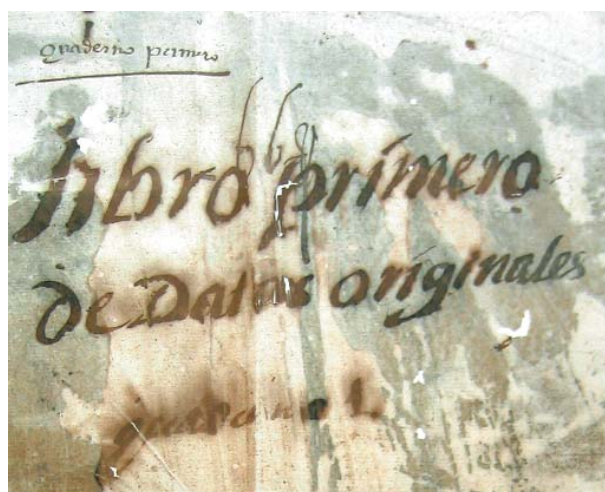 quaderno primero
libro primero
de Datas originales
quaderno 1.